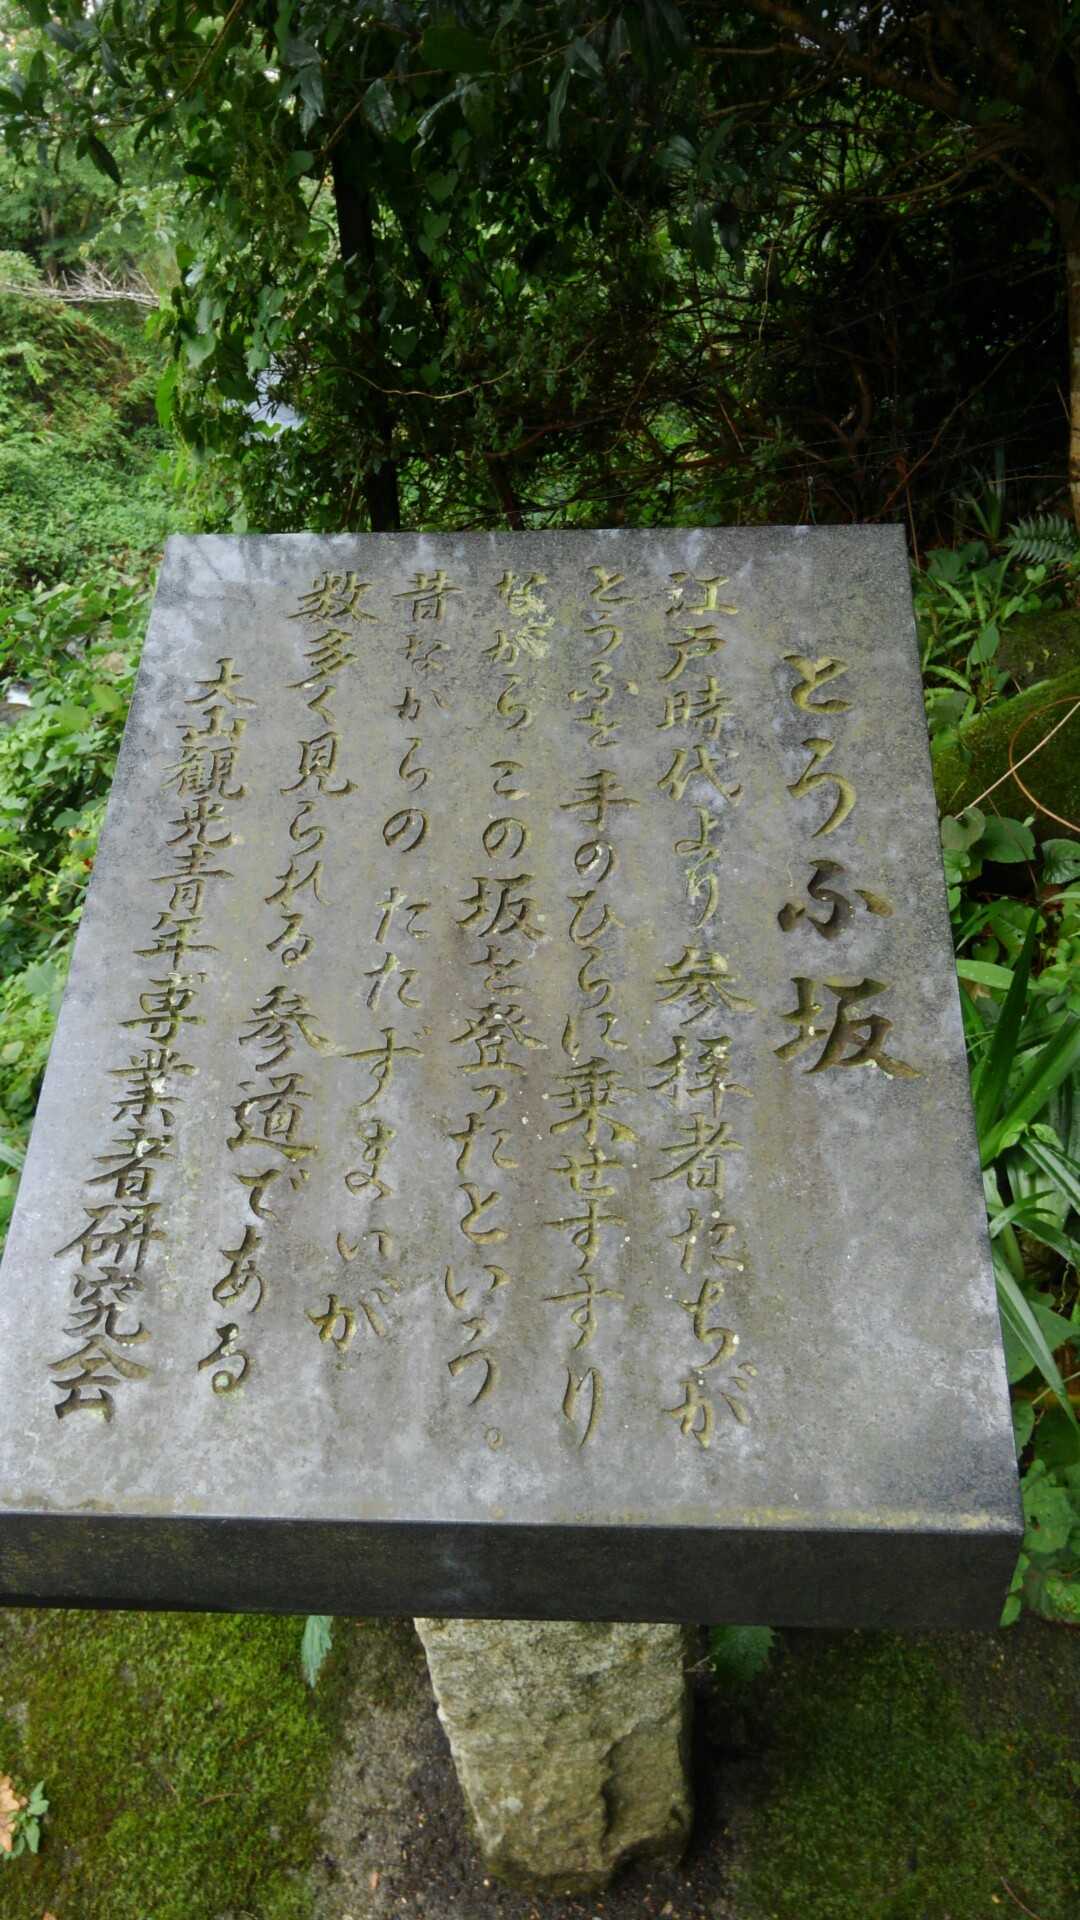 とうふ坂
江戸時代より参拝者たちが
とうふを手のひらに乗せすすり
ながらこの坂を登ったという。
昔ながらのたたずまいが
数多く見られる参道である
大山観光青年専業者研究会